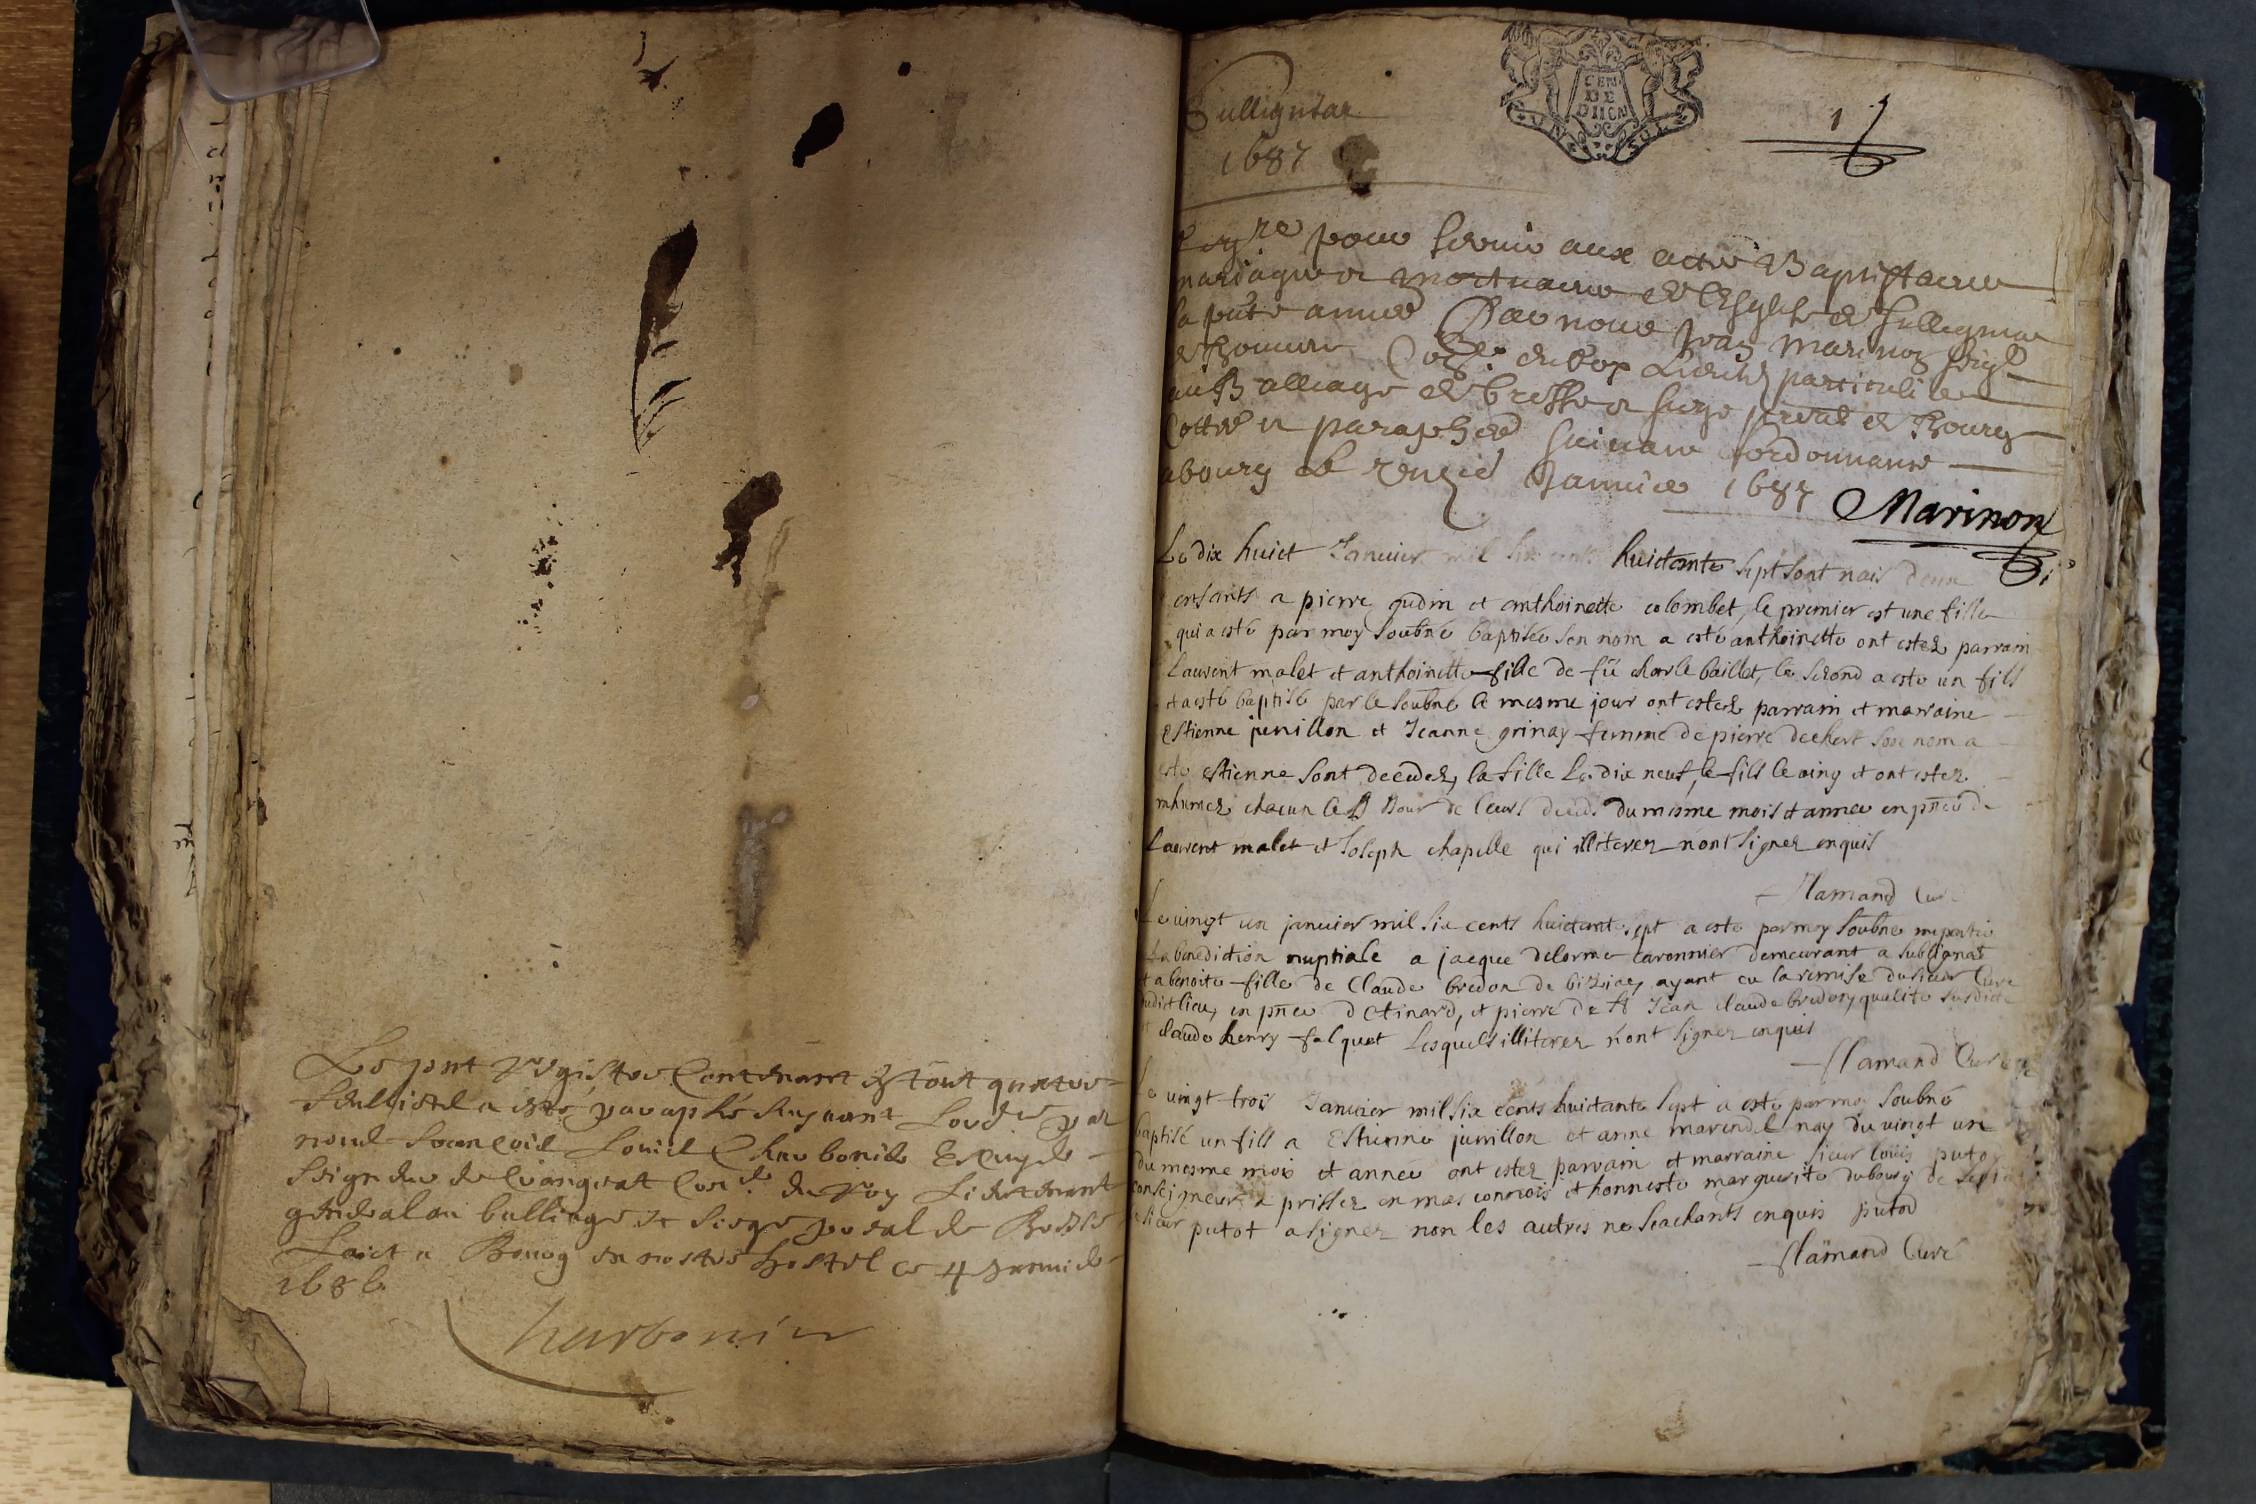 Le pnt registre Contenant en tout quatre
feullietz a esté paraphé suyvant Lordre par
nous francois Louis Charbonier Escuyer
Seigneur de Crangeat Con.er du roy Lieutenant
general au balliage et siege pdal de Bresse
Faict a Bourg en nostre hostel ce 4 Janvier
1686
Charbonier
Sullignia
1687
GEN
DE
DIION
UN SOL
1
Regre pour servir aux actes Baptistaires
mariages et mortuaires de Leglise de Sullignia
la pnte année Par nous Jean Marinon
Cone. du Roy Lieutent particulier
au Balliage de bresse et siege pdal de Bourg
Cotté et paraphé suivant lordonnance
a bourg le Janvier 1687 Marinon
Le dix huict Januier mil six cents huictante sept sont nais deux
enfants a pierre gudin et anthoinette colombet, le premier est une fille
qui a esté par moy soubné baptisée son nom a esté anthoinette ont estez parrain
Laurent malet et anthoinette fille de fû charle baillet, le second a esté un fils
et a esté baptisé par le soubné le mesme jour ont estez parrain et marraine
Estienne juvillon et Jeanne grinay femme de pierre dechert son nom a
esté estienne sont decedez, la fille Le dix neuf, le fils le ving et ont estez
inhumez chacun le Jour de leurs deceds du mesme mois et année en pñce de
Laurent malet et Joseph chapelle qui illiterez n'ont signez enquis
flamand Curé
Le vingt un januier mil six cents huictante sept a esté par moy soubné impartie
La benediction nuptiale a jacque delorme demeurant a sublignat
et a benoite fille de Claude bredon de biziac, ayant eu la remise du sieur Curé
dudict lieu, en pñce d et pierre de Jean claude bredon, qualité susdicte
et claude henry falquet Lesquels illiterez n'ont signez enquis
flamand Curé
Le vingt trois Januier mil six cents huictante sept a esté par moy soubné
baptisé un fils a Estienne juvillon et anne marendel nay du vingt un
du mesme mois et année ont estez parrain et marraine sieur louis putod
conseigneur a prissez en masconnois et honneste marguerite dubourg de
Le sieur putot a signez non les autres ne scachants enquis putod
flamand Curé